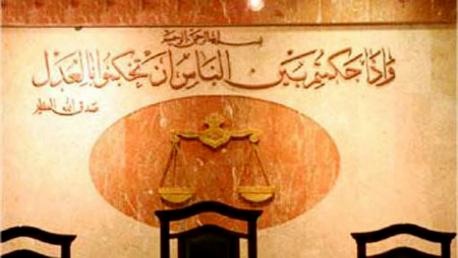 بسم الله الرحمن الرحيم
وإذا حكمتم بين الناس أن تحكموا بالعدل
صدق الله العظيم